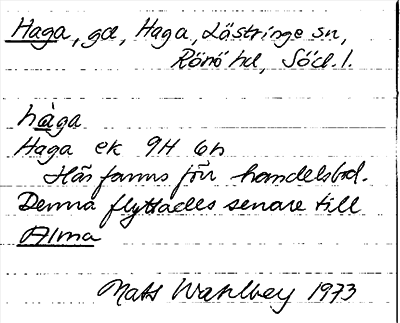 Haga, gd, Haga, Lästringe sn,
Rönö hd, Söd. l.
hàga
Haga ek 9H 6h
Här fanns förr handelsbod.
Denna flyttades senare till
Alma
Mats Wahlberg 1973